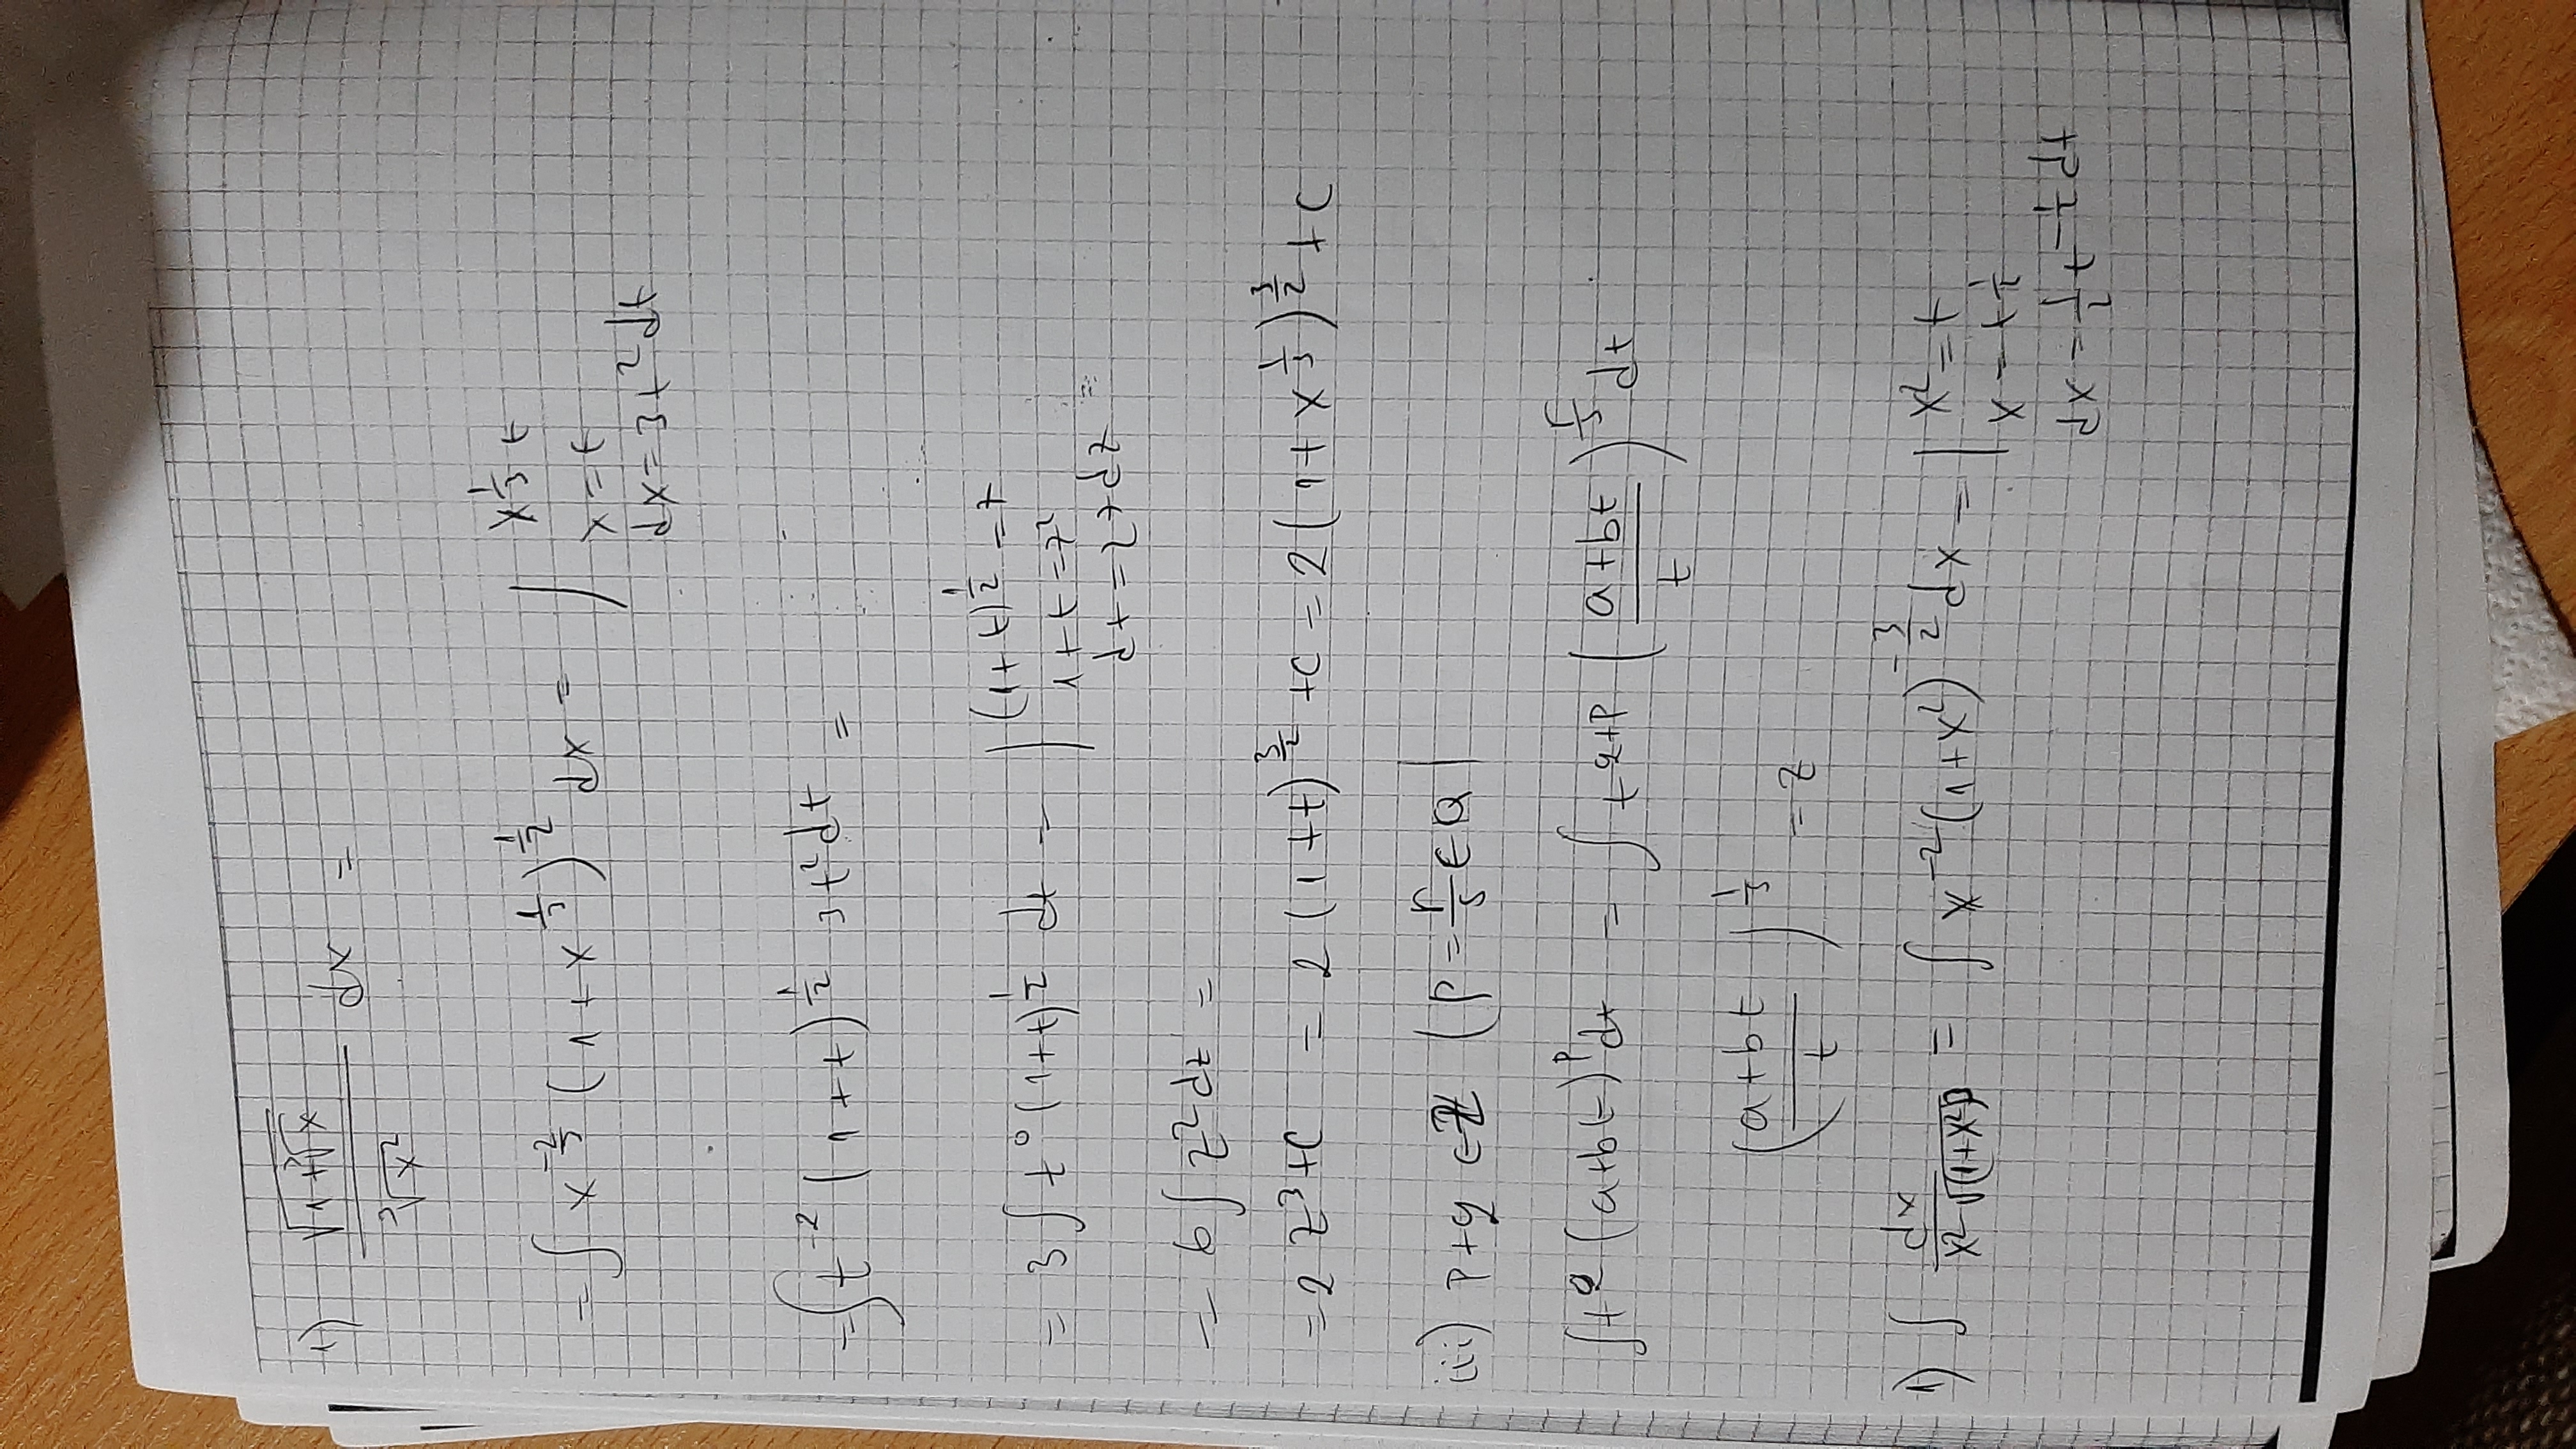 1) √(1+∛x) / ∛(x²) dx =
= ∫ x^(-2/3) (1 + x^(1/3))^(1/2) dx = | x^(1/3) t
x = t
dx = 3t² dt
= ∫ t^(-2) (1 + t)^(1/2) 3t² dt =
= 3 ∫ t^0 (1+t)^(1/2) dt - | (1+t)^(1/2) = z
1 + t = z²
dt = 2z dz =
= 6 ∫ z² dz =
= 2 z³ + C = 2 (1+t)^(3/2) + C = 2 (1 + x^(1/3))^(3/2) + C
iii) p + q ∈ Z (p = r/s ∈ Q)
∫ t^q (a+bt)^p dt = ∫ t^(q+p) ((a+bt)/t)^(r/s) dt
((a+bt)/t)^(1/s) = z
1) ∫ dx / (x² √((1+x²)³)) = ∫ x^(-2) (1+x²)^(-3/2) dx = | x² = t
x = t^(1/2)
dx = 1/2 t^(-1/2) dt